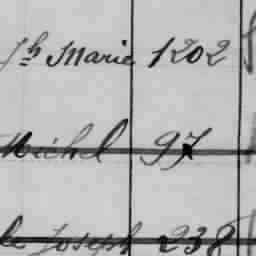 Jh Marie 1202
Michel 97
le Joseph 238